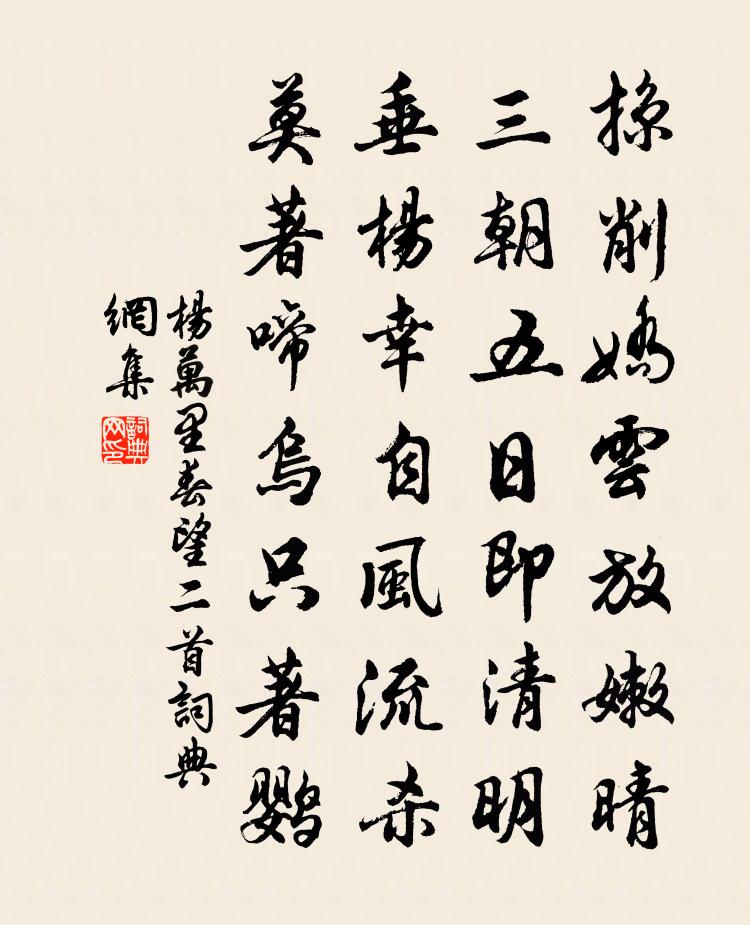 掠削嬌雲放嫩晴
三朝五日即清明
垂楊幸自風流杀
莫著啼烏只著鸚
楊萬里春望二首詞典
網集
詞典
网印